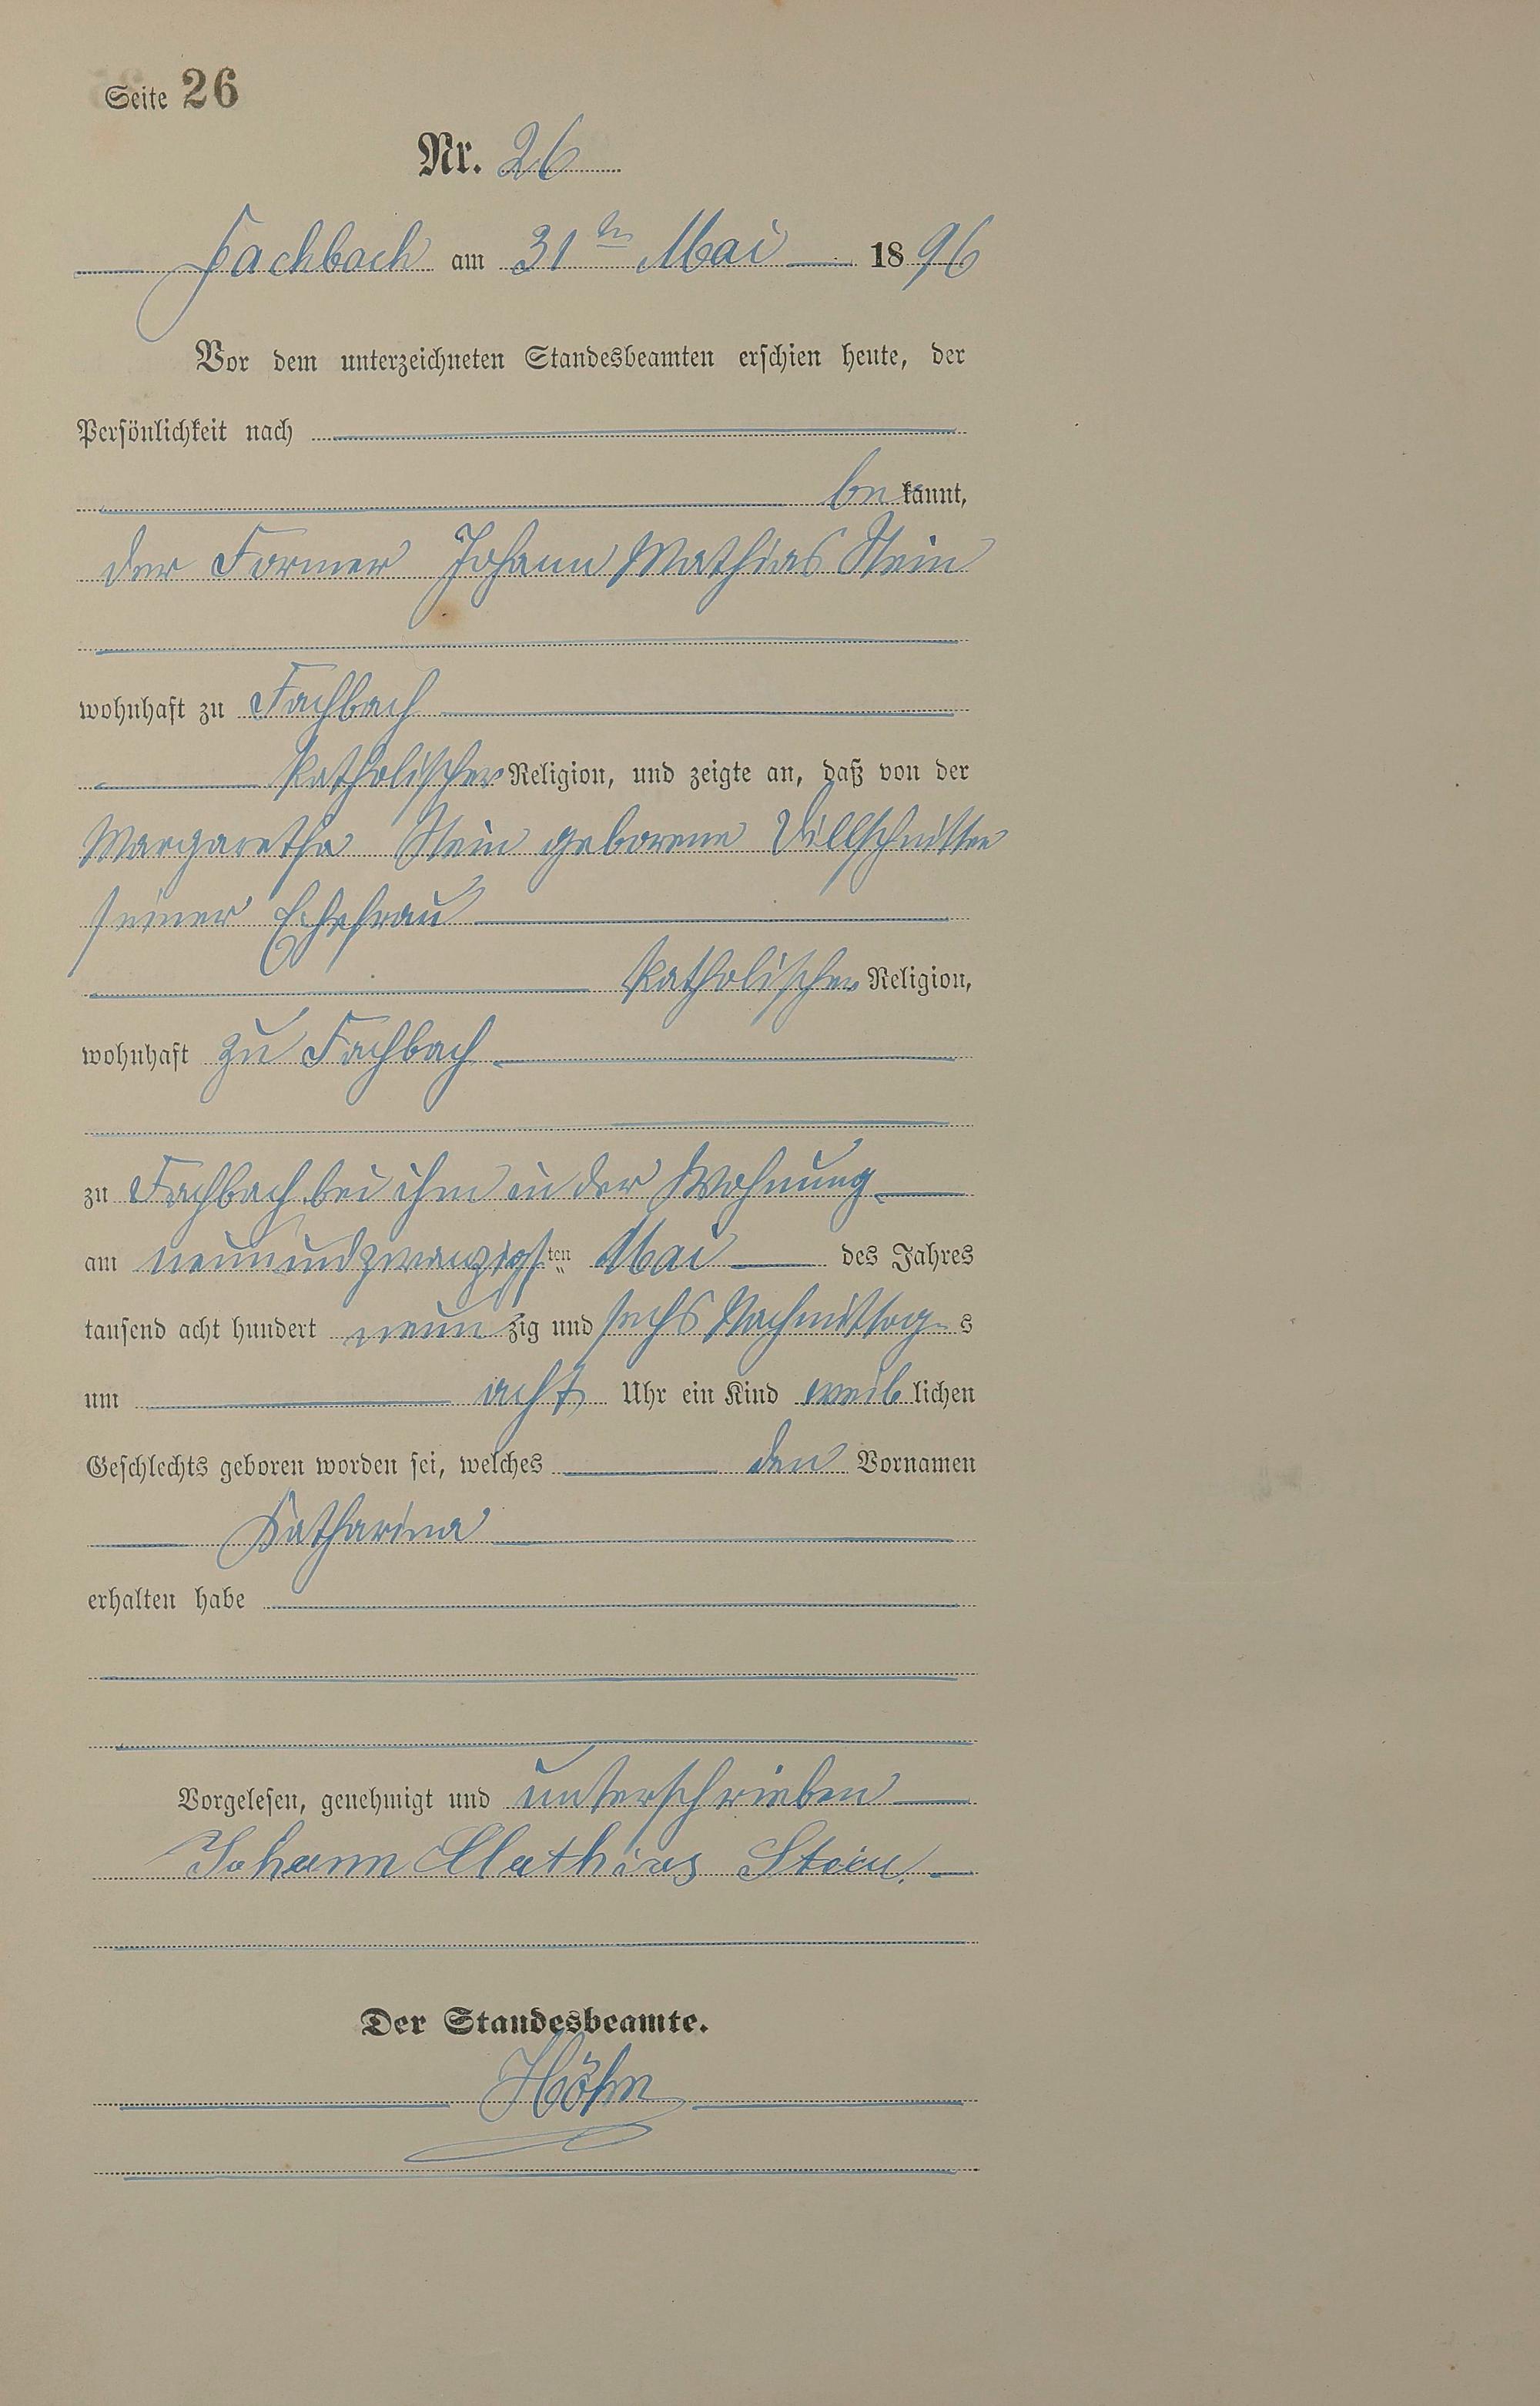 Seite 26
Nr. 26
Fachbach am 31ten Mai 1896
Vor dem unterzeichneten Standesbeamten erschien heute, der
Persönlichkeit nach
bekannt,
der Former Johann Mathias Stein
wohnhaft zu Fachbach
katholischer Religion, und zeigte an, daß von der
Margaretha Stein geborene
seiner Ehefrau
katholischer Religion,
wohnhaft zu Fachbach
zu Fachbach bei ihm in der Wohnung
am neunundzwanzigsten Mai des Jahres
tausend acht hundert neunzig und sechs Nachmittags
um acht Uhr ein Kind weiblichen
Geschlechts geboren worden sei, welches den Vornamen
Katharina
erhalten habe
Vorgelesen, genehmigt und unterschrieben
Johann Mathias Stein.
Der Standesbeamte.
Höhn